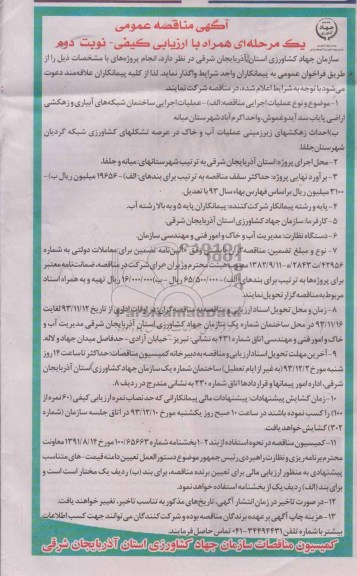 آگهی مناقصه عمومی
یک مرحله‌ای همراه با ارزیابی کیفی - نوبت دوم
سازمان جهاد کشاورزی استان آذربایجان شرقی در نظر دارد، انجام پروژه‌های با مشخصات ذیل را از
طریق فراخوان عمومی به پیمانکاران واجد شرایط واگذار نماید. لذا از کلیه پیمانکاران علاقه‌مند دعوت
می‌شود با توجه به شرایط اعلام شده، در مناقصه شرکت نمایند.
۱- موضوع و نوع عملیات اجرایی مناقصه: الف) - عملیات اجرایی ساختمان شبکه‌های آبیاری و زهکشی
اراضی پایاب سد آیدوغموش، واحد اکرم آباد شهرستان میانه
ب) احداث زهکشهای زیرزمینی عملیات آب و خاک در عرصه تشکلهای کشاورزی شبکه گردیان
شهرستان جلفا
۲- محل اجرای پروژه: استان آذربایجان شرقی به ترتیب شهرستانهای: میانه و جلفا.
۳- برآورد نهایی پروژه: حداکثر سقف مناقصه به ترتیب برای بندهای: الف) - ۱۹۶۵۶ میلیون ریال ب) -
۳۱۰۰ میلیون ریال بر اساس فهارس بهاء سال ۹۳ با تعدیل.
۴- پایه و رشته پیمانکار شرکت‌کننده: پیمانکاران پایه ۵ و به بالا رشته آب.
۵- کارفرما: سازمان جهاد کشاورزی استان آذربایجان شرقی.
۶- دستگاه نظارت: مدیریت آب و خاک و امور فنی و مهندسی سازمان.
۷- نوع و مبلغ تضمین: مناقصه‌گران وفق آیین‌نامه تضمین برای معاملات دولتی به شماره
۴۲۹۵۶/ت۲۸۴۹۳ه مورخ ۱۳۸۲/۹/۱۱ هیئت محترم وزیران برای شرکت در مناقصه، ضمانت‌نامه معتبر
برای پروژه‌ها به ترتیب برای بندهای الف) - ۶۵/۵۰۰/۰۰۰ ریال - ب) ۱۶/۰۰۰/۰۰۰ ریال تهیه و به همراه اسناد
مربوط به مناقصه‌گزار تحویل نمایند.
۸- زمان و محل تحویل اسناد ارزیابی و مناقصه به مناقصه‌گران: در اوقات اداری از تاریخ ۹۳/۱۱/۱۲ لغایت
۹۳/۱۱/۱۶ در محل ساختمان شماره یک سازمان جهاد کشاورزی استان آذربایجان شرقی مدیریت آب و
خاک و امور فنی و مهندسی اتاق شماره ۴۳۱ به نشانی: تبریز - خیابان آزادی - حدفاصل میدان جهاد و لاله.
۹- آخرین مهلت تحویل اسناد ارزیابی و مناقصه به دبیرخانه کمیسیون مناقصات: حداکثر تا ساعت ۱۴ روز
شنبه مورخ ۹۳/۱۲/۲ (به غیر از ایام تعطیل) ساختمان شماره یک سازمان جهاد کشاورزی استان آذربایجان
شرقی، اداره امور پیمانها و قراردادها اتاق شماره ۲۳۰ به نشانی مندرج در ردیف ۸.
۱۰- زمان گشایش پیشنهادات: پیشنهادات مالی پیمانکارانی که حد نصاب نمره ارزیابی کیفی (۶۰ نمره از
۱۰۰) را کسب نموده باشند در ساعت ۱۰ صبح روز یکشنبه مورخ ۹۳/۱۲/۱۰ در اتاق جلسه سازمان (شماره
۳۰۲) گشایش خواهد یافت.
۱۱- کمیسیون مناقصه در نحوه استفاده از بند ۲-۱۰ بخشنامه شماره ۱۰۰/۶۵۶۶۳ مورخ ۱۳۹۱/۸/۱۴ معاونت
محترم برنامه‌ریزی و نظارت راهبردی رئیس جمهور موضوع دستورالعمل تعیین دامنه قیمت‌های متناسب
پیشنهادی به منظور ارزیابی مالی برای تعیین برنده مناقصه، برای بند (ب) ردیف یک مختار است است و
برای بند (الف) ردیف یک از بخشنامه استفاده خواهد نمود.
۱۲- در صورت تاخیر در زمان انتشار آگهی، تاریخ‌های مذکور به تناسب تاخیر، تغییر خواهند یافت.
۱۳- هزینه چاپ آگهی بر عهده برندگان مناقصه بوده و شرکت‌کنندگان می‌توانند جهت کسب اطلاعات
بیشتر با شماره تلفن ۳۴۴۹۴۴۳۱-۰۴۱ تماس حاصل فرمایند.
کمیسیون مناقصات سازمان جهاد کشاورزی استان آذربایجان شرقی